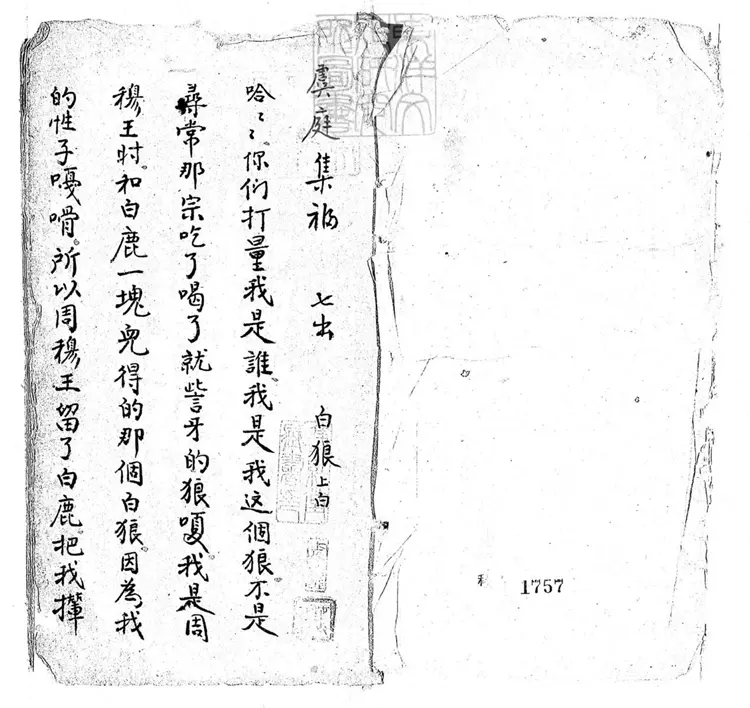 虞庭集福 七出 白狼上白
哈〻〻你们打量我是誰我是我这個狼不是
尋常那宗吃了喝了就訾牙的狼嗄我是周
穆王时和白鹿一塊兒得的那個白狼因為我
的性子嘎嘈所以周穆王留了白鹿把我攆
1757